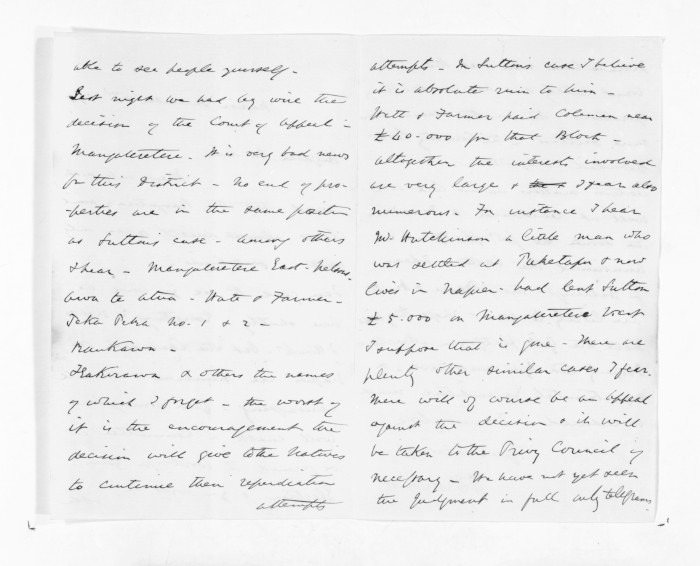 able to see people yourself -
Last night we had by wire the
decision of the Court of Appeal -
Mangateretere. It is very bad news
for this District - No end of pro-
-perties are in the same position
as Suttons case - Among others
I hear - Mangateretere East -
awa te atua - Watt & Farmer -
Teka Teka No. 1 & 2 -
Raukawa -
& others the names
of which I forget - the worst of
it is the encouragement the
decision will give to the Natives
to continue their repudiation
attempts
attempts - In Suttons case I believe
it is absolute ruin to him -
Watt & Farmer paid Coleman near
£40.000 for that Block -
altogether the interests involved
are very large & I fear also
numerous - For instance I hear
Mr Hutchinson a little man who
was settled at Puketapu & now
lives in Napier - had lent Sutton
£5.000 on Mangateretere West
I suppose that is gone - There are
plenty other similar cases I fear.
There will of course be an appeal
against the decision & it will
be taken to the Privy Council if
necessary - We have not yet seen
the Judgment in full only telegrams